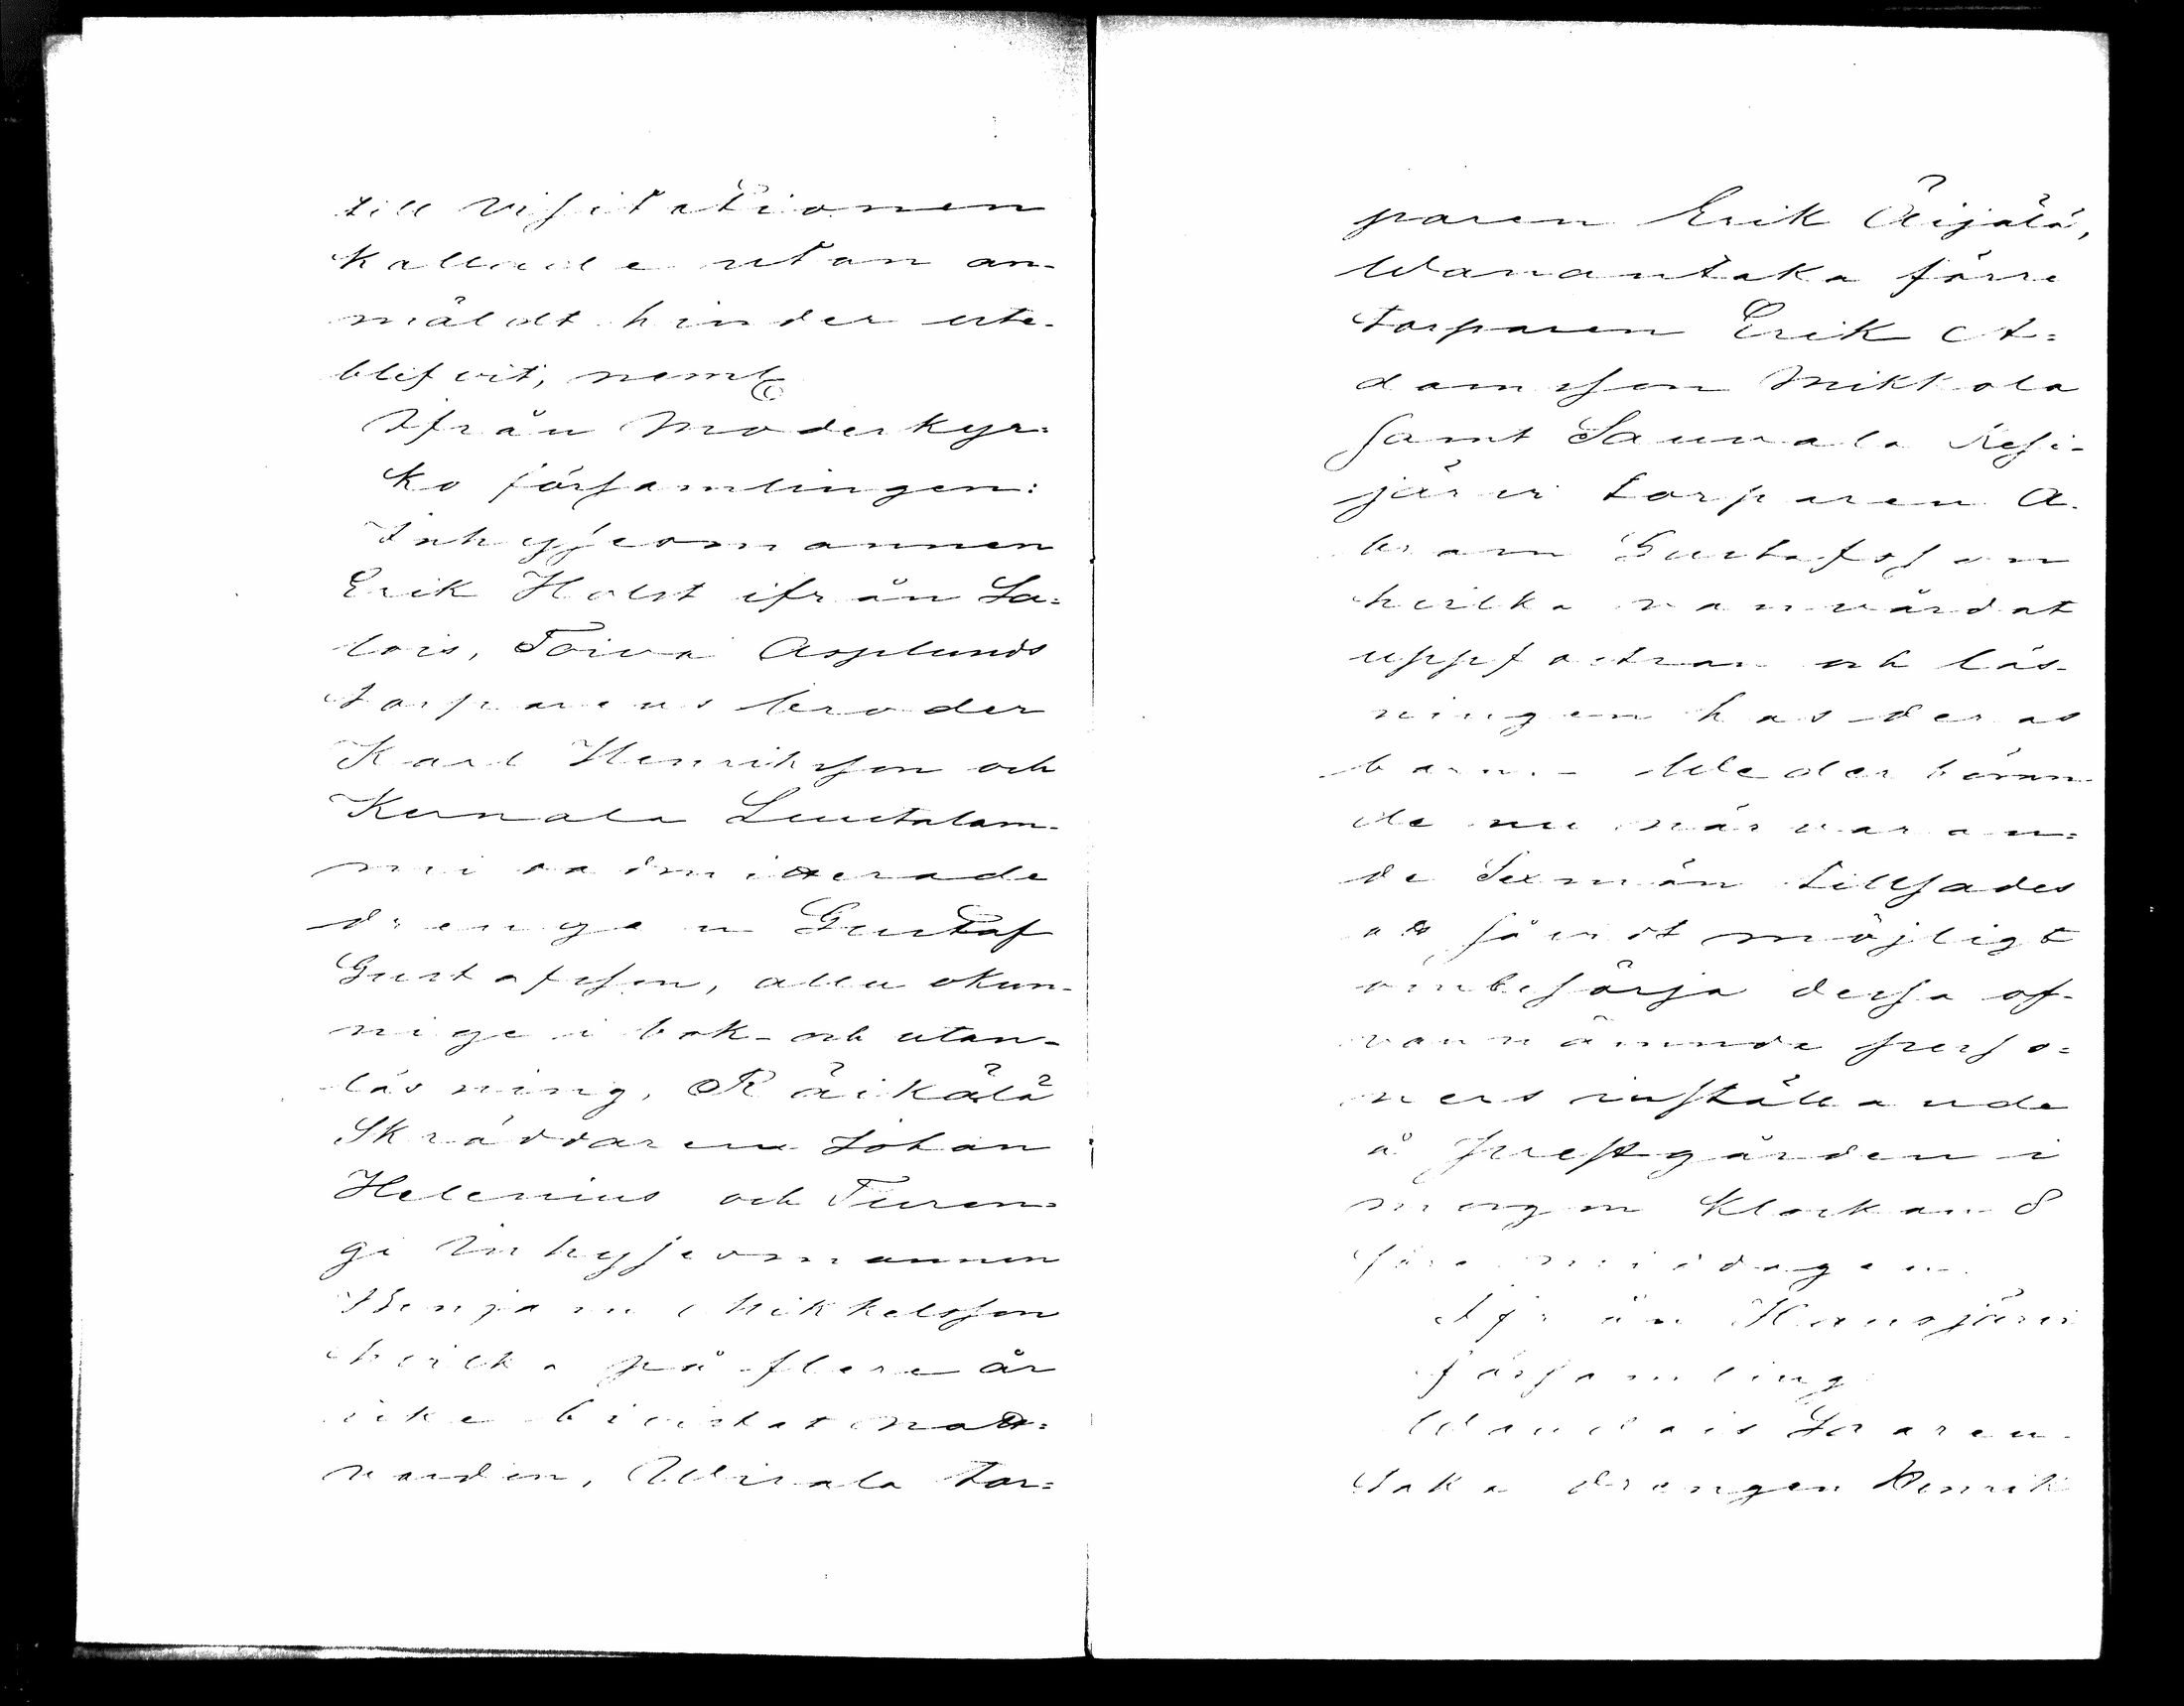 till visitationen
kallade utan an-
mäldt hinder ute-
blefvit, neml.
Ifrån Moderkyr-
ko församlingen:
Inhysesmannen
Erik Holst ifrån La-
lois, Toiva Asplunds
torparens broder
Karl Henriksson och
Kernala Luuctalam-
mi oadmitterade
drengen Gustaf
Gustafsson, alla okun-
nige i bok- och utan-
läsning, Räikälä
Skräddaren Johan
Helenius och Turen-
gi Inhysesmannen
Benjam Mikkelsson
hvilka på flera år
icke bivistat natt-
varden, Uivala tor-
paren Erik Äijälä,
Wanantaka förre
torparen Erik A-
damsson Mikkola
samt Sauvala Kesi-
järvi torparen A-
bram Gustafsson
hvilka vanvårdat
uppfostran och läs-
ningen hos deras
barn. - Wederböran-
de nu närvaran-
de Sexmän tillsades
att såvidt möjligt
ombesörja dessa of-
vannämnde perso-
ners inställande
å prestgården i
morgon klockan 8
före middagen.
Ifrån Hausjärvi
församling
Waudais Saaren-
taka drengen Henrik